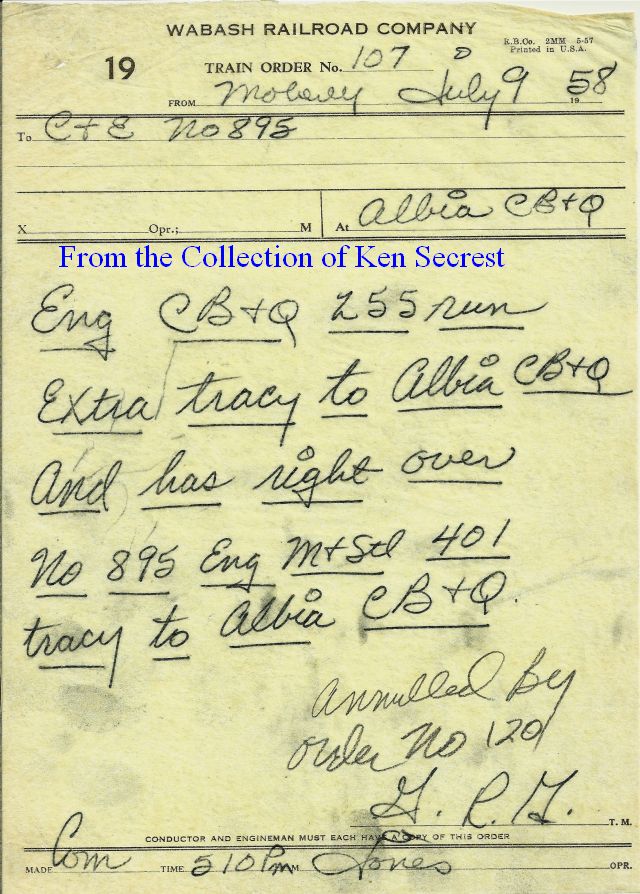 WABASH RAILROAD COMPANY
R.B.Co. 2MM 5-57
Printed in U.S.A.
19
TRAIN ORDER No. 107
FROM Moberly July 9 1958
To C+E No 895
X Opr.; M At Albia CB+Q
From the Collection of Ken Secrest
Eng CB+Q 255 run
Extra tracy to Albia CB+Q
And has right over
No 895 Eng M+Stl 401
tracy to Albia CB+Q.
Annulled By
order No 120
G. R. G. T. M.
CONDUCTOR AND ENGINEMAN MUST EACH HAVE A COPY OF THIS ORDER
MADE Com TIME 510 Pm M Jones OPR.